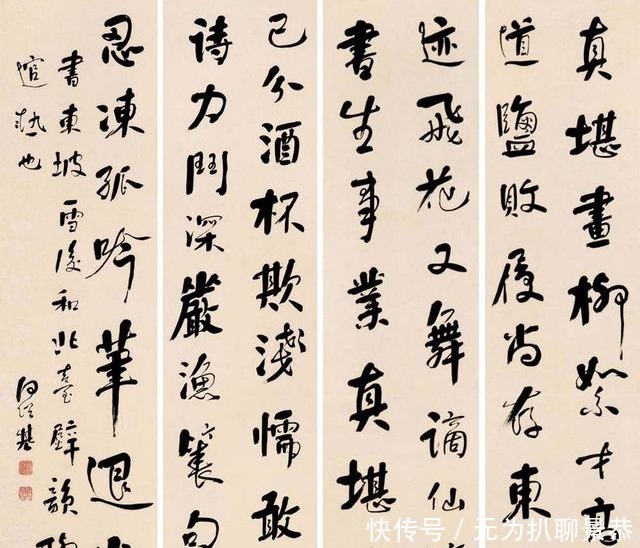 真堪畫柳絮才高
道鹽敗履尚存東
迹飛花又舞謫仙
書生事業真堪
已分酒杯欺淺懦敢
詩力鬥深嚴漁蓑句
忍凍孤吟筆退
書東坡雪後和北臺壁韻
也
何紹基
快传号／无为扒聊景恭